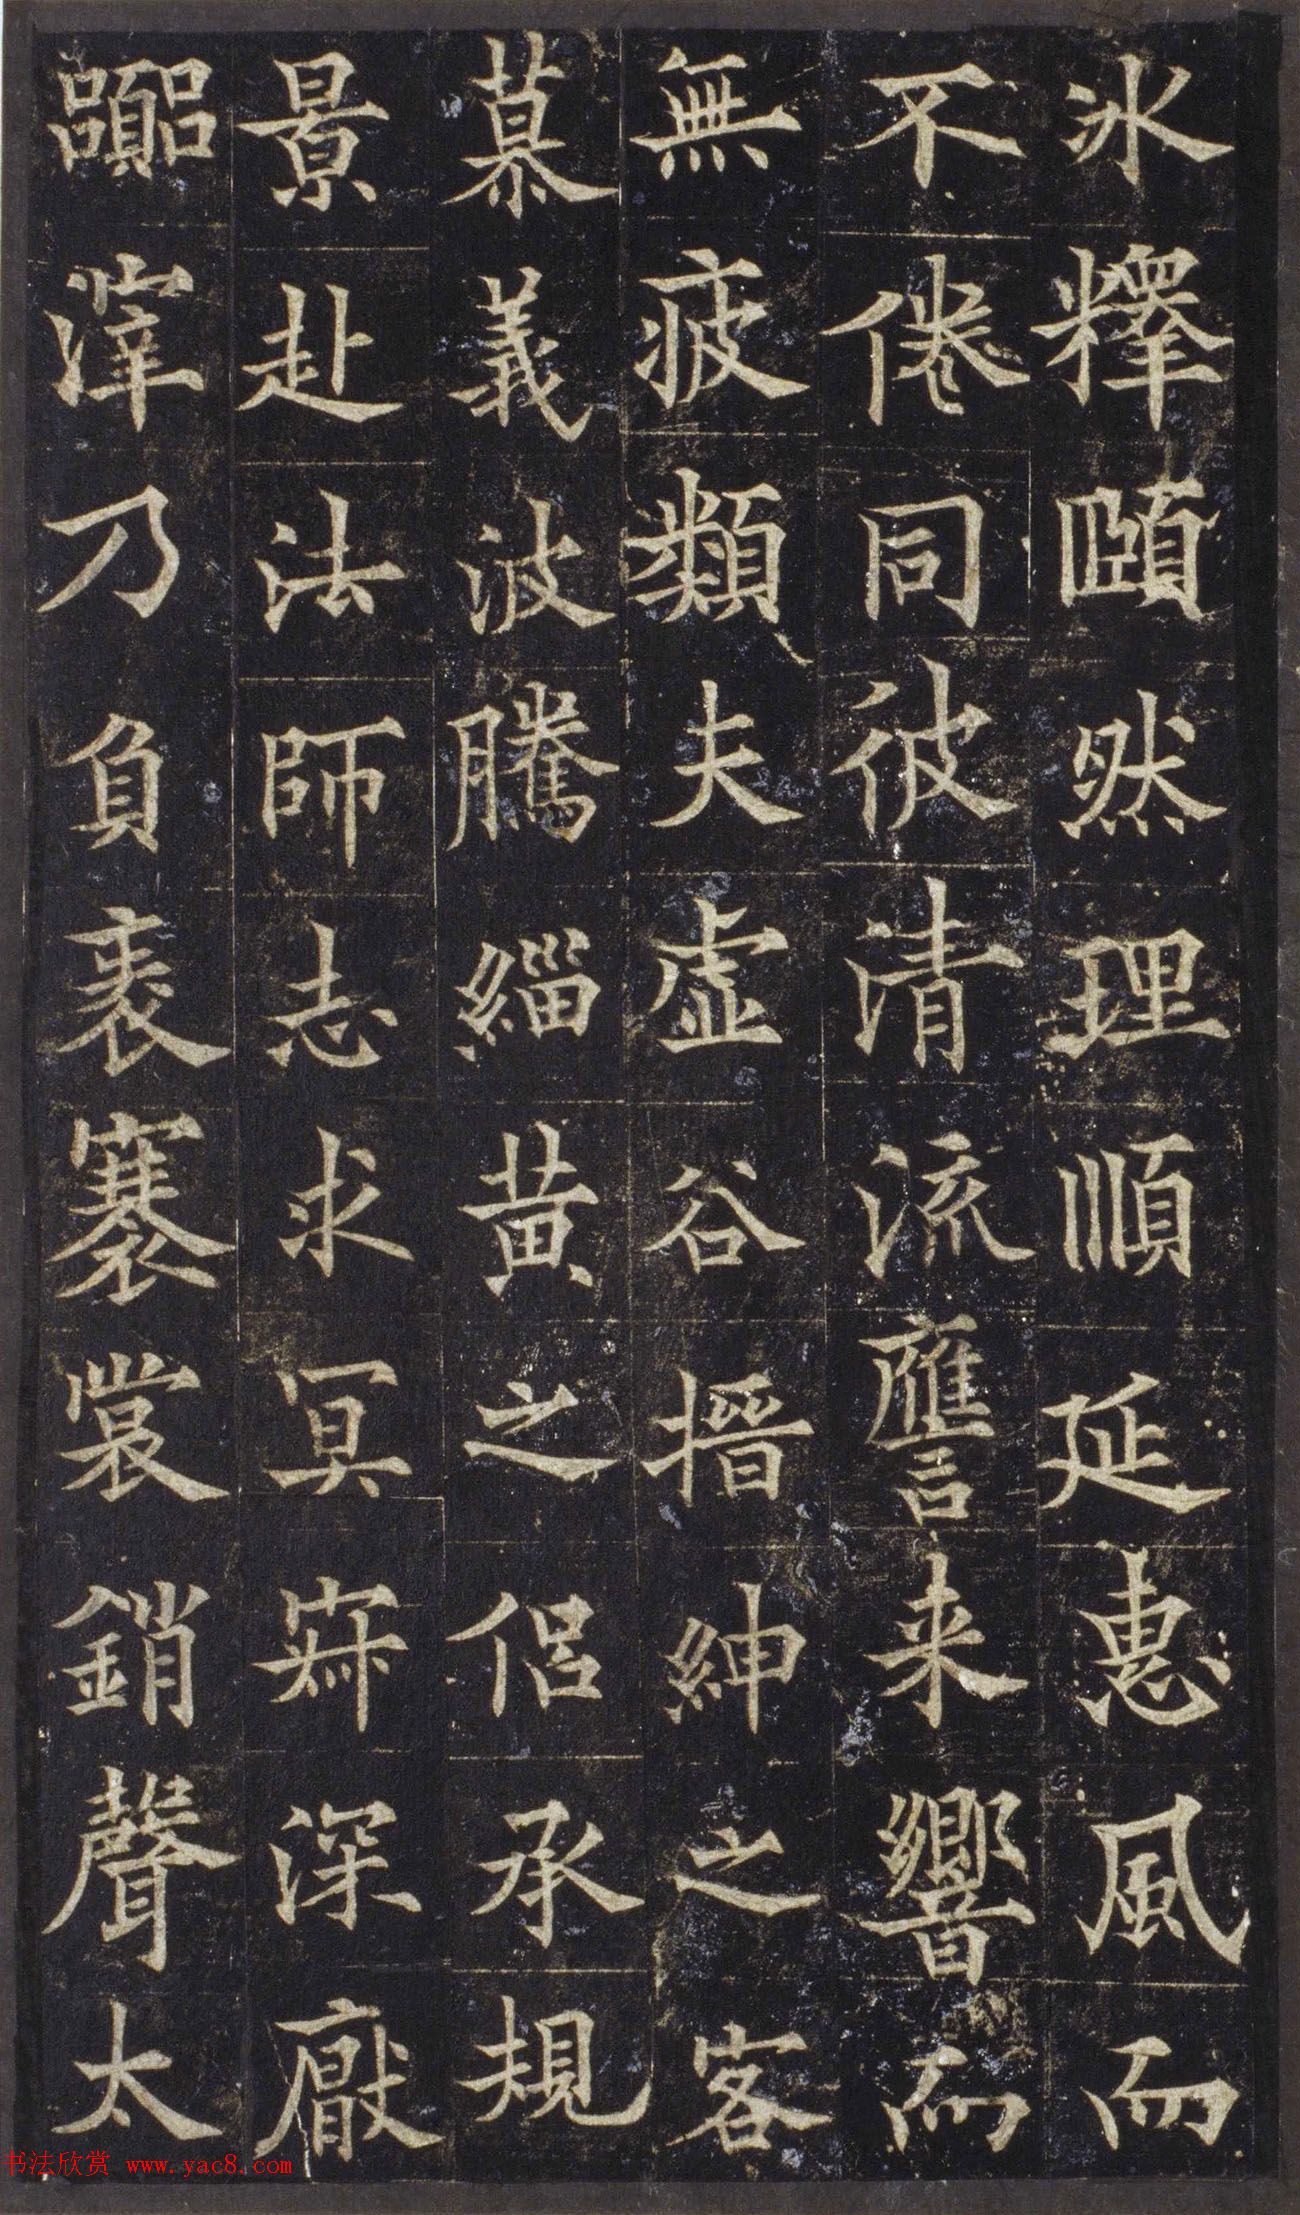 冰釋頤然理順延惠風而
不倦同彼清流譍来響而
無疲類夫虛谷搢紳之客
慕義波騰緇黄之侶承規
景赴法師志求冥寂深厭
囂滓乃負袠褰裳銷聲太
书法欣赏 www.yac8.com